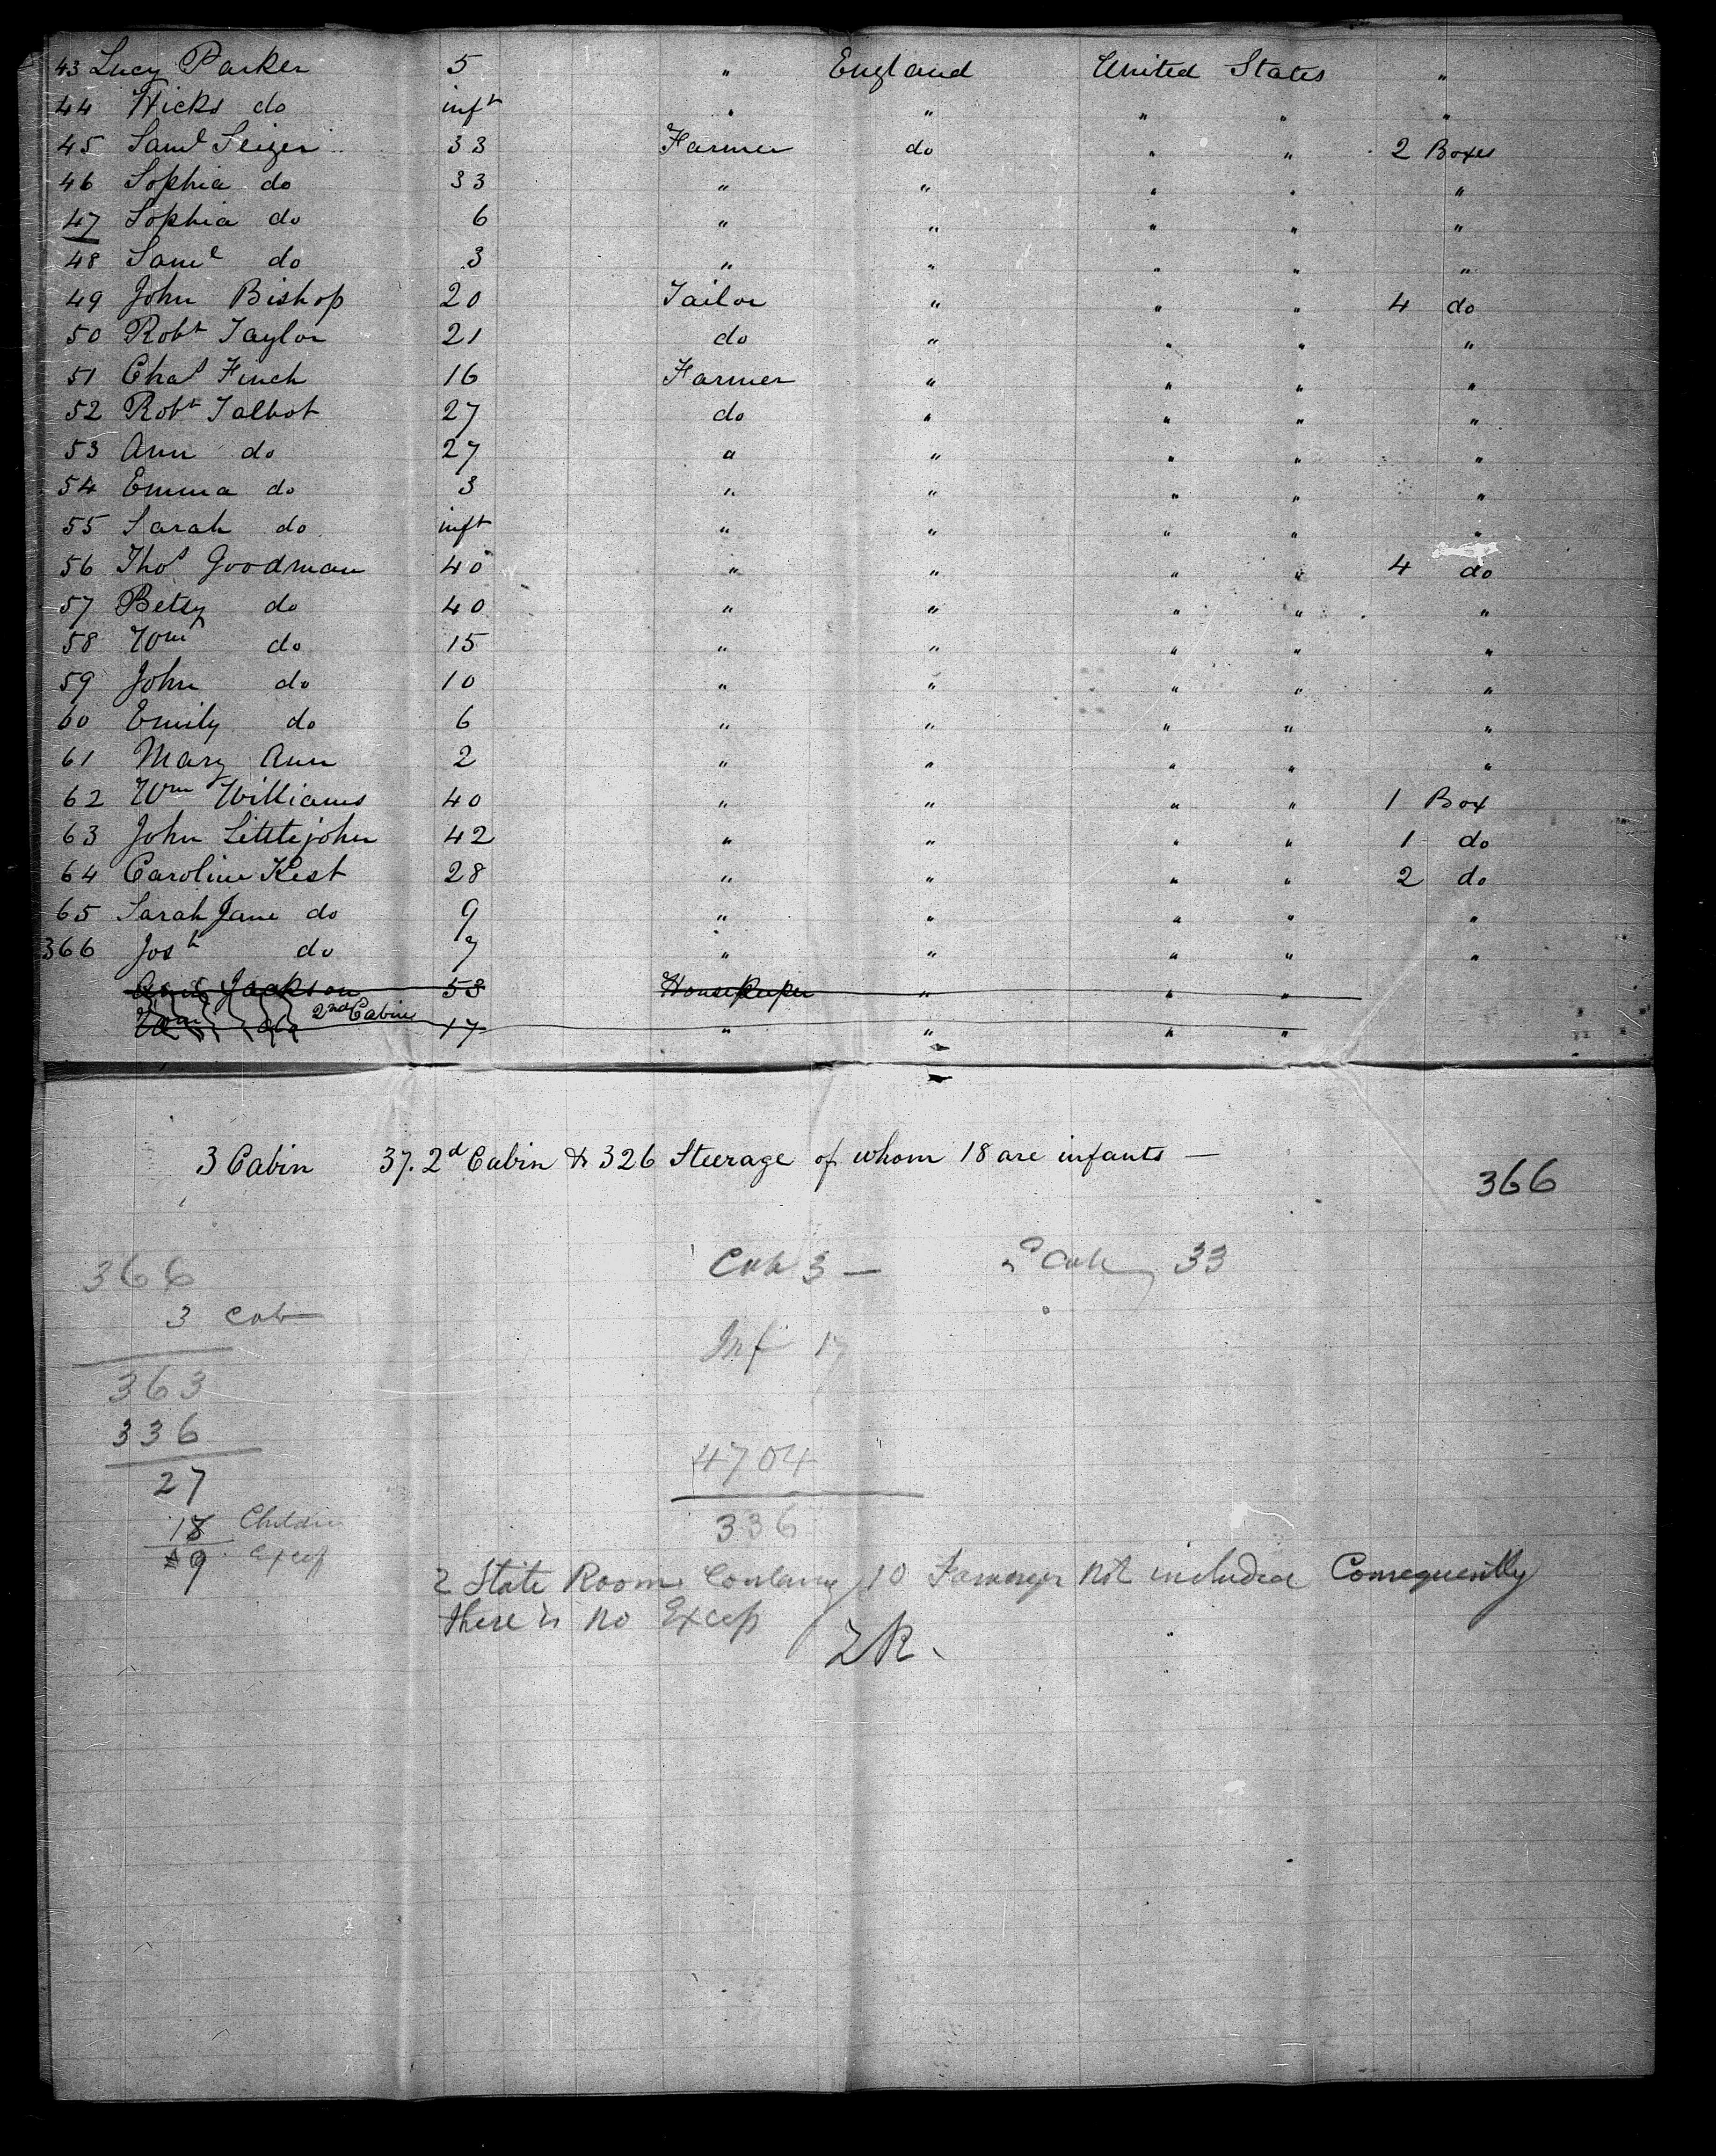 43 Lucy Parker 5 " England United States "
44 Hicks do inft " " " " "
45 Saml Seizer 33 Farmer do " " 2 Boxes
46 Sophia do 33 " " " " "
47 Sophia do 6 " " " " "
48 Saml do 3 " " " " "
49 John Bishop 20 Tailor " " " 4 do
50 Robt Taylor 21 do " " " "
51 Chas Finch 16 Farmer " " " "
52 Robt Talbot 27 do " " " "
53 Ann do 27 " " " " "
54 Emma do 3 " " " " "
55 Sarah do inft " " " " "
56 Thos Goodman 40 " " " " 4 do
57 Betsy do 40 " " " " "
58 Wm do 15 " " " " "
59 John do 10 " " " " "
60 Emily do 6 " " " " "
61 Mary Ann 2 " " " " "
62 Wm Williams 40 " " " " 1 Box
63 John Littlejohn 42 " " " " 1 do
64 Caroline Kest 28 " " " " 2 do
65 Sarah Jane do 9 " " " " "
366 Josh do 7 " " " " "
Jackson 53 Housekeeper " " "
Wm do 2nd Cabin 17 " " " "
3 Cabin 37. 2d Cabin & 326 Steerage of whom 18 are infants —
366
366
3 Cab
363
336
27
18 Children
9 Excess
Cab 3 — 2 Cab 33
Inf 17
4704
336
2 State Rooms 10 Passenger not included Consequently
there is no Excess